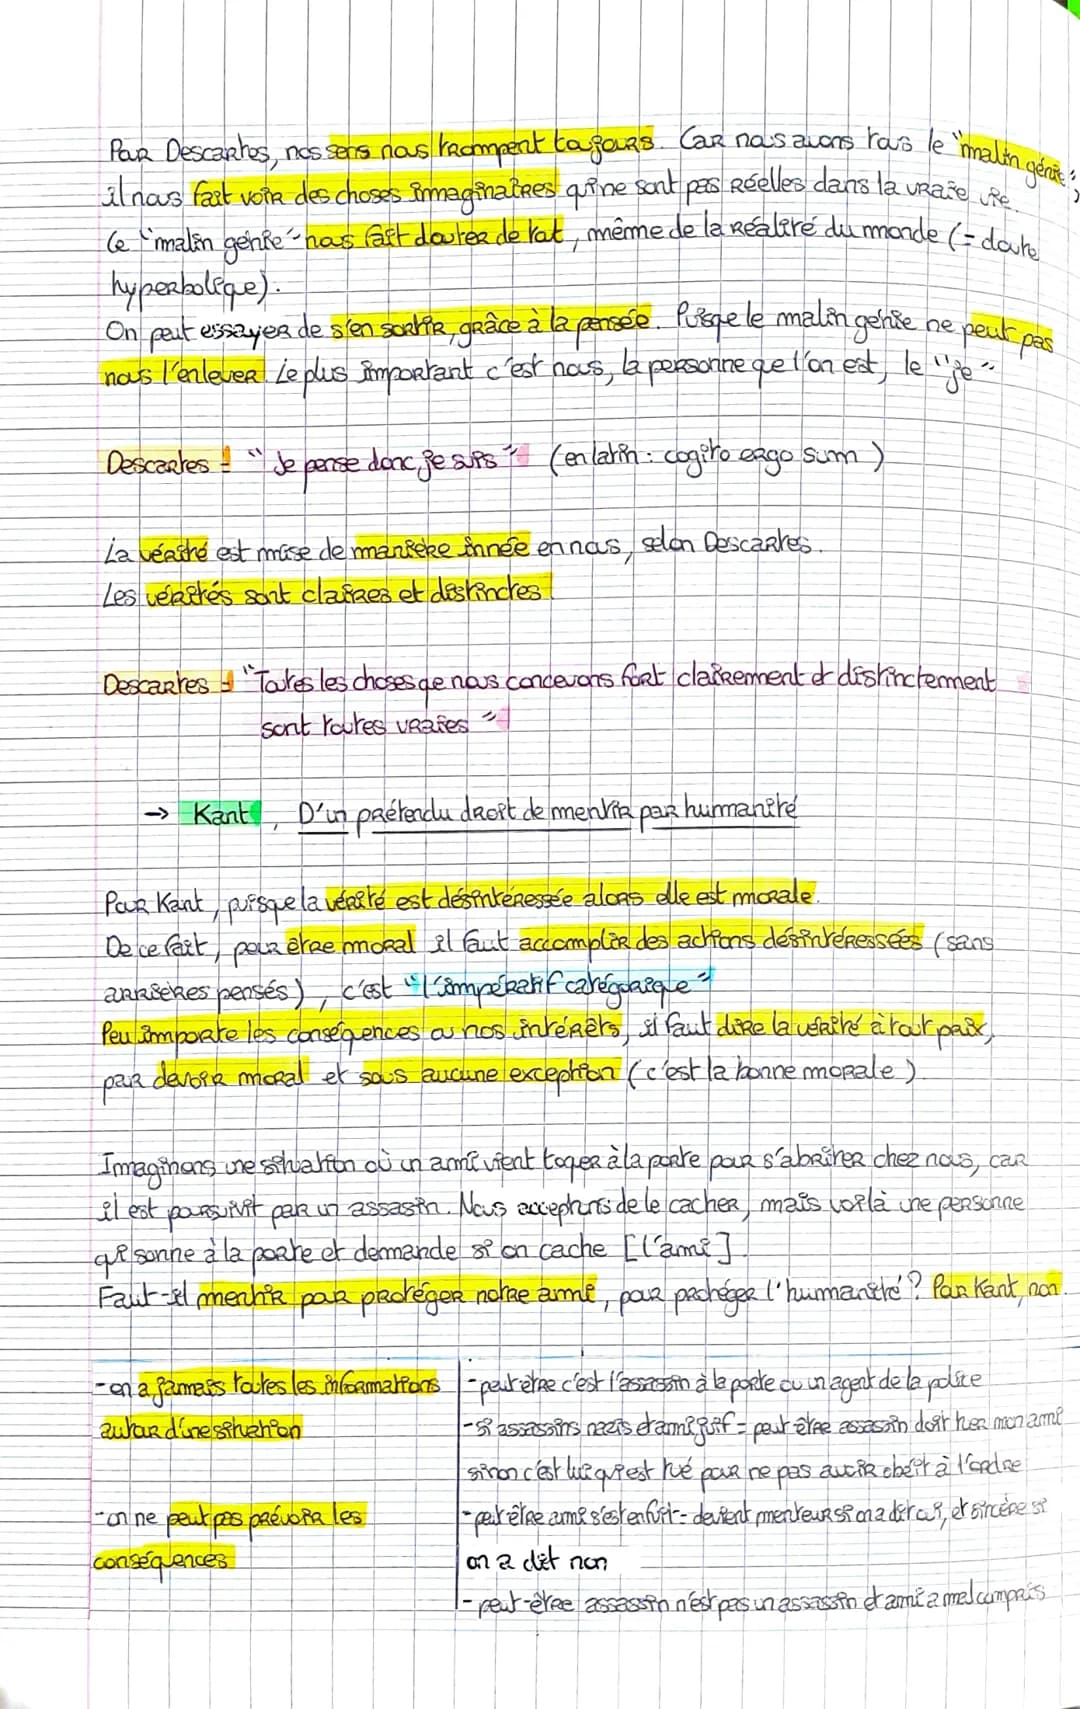 Pour Descartes, nos sens nous trompent toujours. Car nous avons tous le "malin génie":
il nous fait voir des choses immaginaires qui ne sont pas réelles dans la vraie vie.
Ce "malin génie" nous fait douter de tout, même de la réalité du monde (= doute
hyperbolique).
On peut essayer de s'en sortir, grâce à la pensée. Puisque le malin génie ne peut pas
nous l'enlever. Le plus important c'est nous, la personne que l'on est, le "je"
Descartes : "Je pense donc, je suis" (en latin : cogito ergo sum)
La vérité est mise de manière innée en nous, selon Descartes.
Les vérités sont claires et distinctes.
Descartes : "Toutes les choses que nous concevons fort clairement et distinctement
sont toutes vraies"
→ Kant, D'un prétendu droit de mentir par humanité
Pour Kant, puisque la vérité est désintéressée alors elle est morale.
De ce fait, pour être moral il faut accomplir des actions désintéressées (sans
arrières pensés), c'est "l'impératif catégorique"
Peu importe les conséquences ou nos intérêts, il faut dire la vérité à tout prix,
par devoir moral et sous aucune exception (c'est la bonne morale).
Imaginons une situation où un ami vient toquer à la porte pour s'abriter chez nous, car
il est poursuivit par un assassin. Nous acceptons de le cacher, mais voilà une personne
qui sonne à la porte et demande si on cache [l'ami].
Faut-il mentir par protéger notre ami, pour protéger l'humanité ? Pour Kant, non.
- on a jamais toutes les informations
autour d'une situation
- peut être c'est l'assassin à la porte ou un agent de la police
- si assassins nazis et ami juif = peut être assassin doit tuer mon ami
sinon c'est lui qui est tué pour ne pas avoir obéit à l'ordre
- on ne peut pas prévoir les
conséquences
- peut être ami s'est enfuit = devient menteur si on a dit oui, et sincère si
on a dit non
- peut-être assassin n'est pas un assassin et ami a mal compris